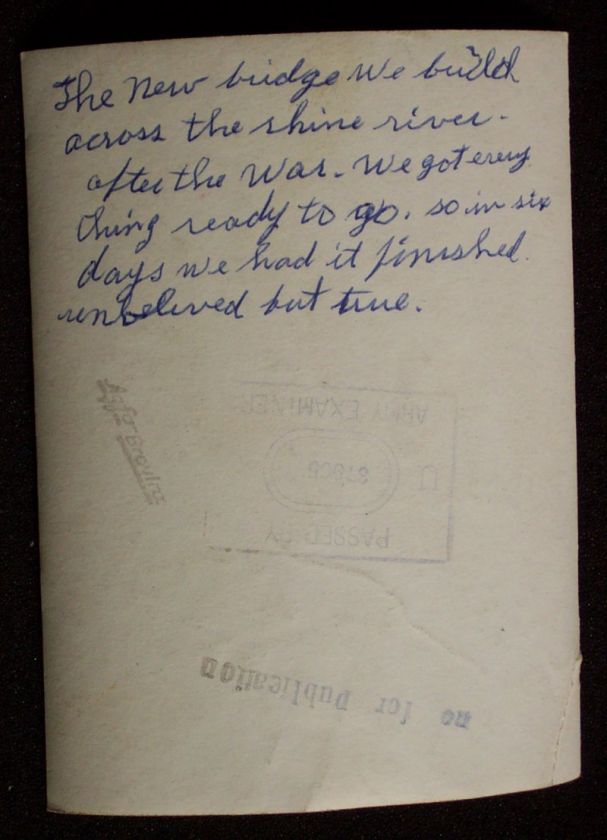 The New bridge we build
across the rhine river.
after the War. We got every
thing ready to go. so in six
days we had it finished.
unbelived but true.
Agfa Brovira
ARMY EXAMINER
U
PASSED BY
no for Publication